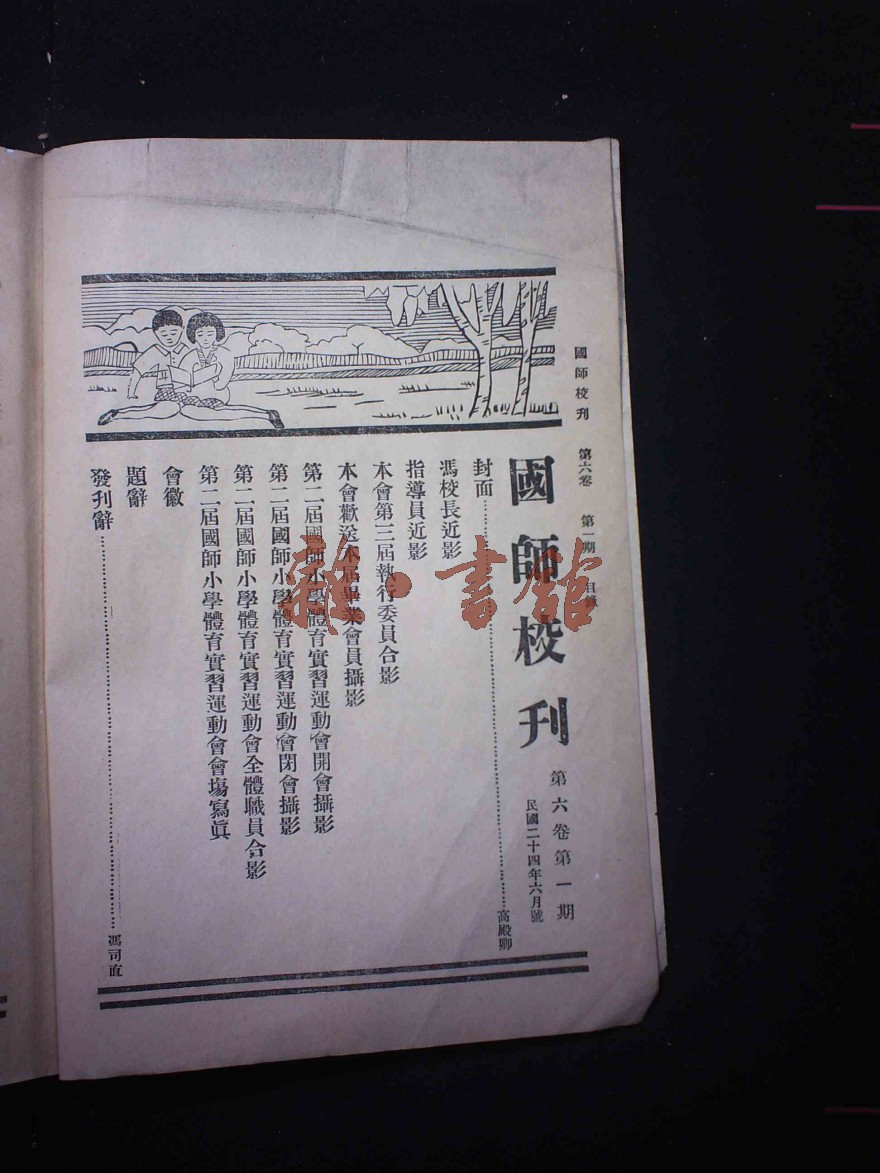 國師校刊 第六卷 第一期 目錄
國師校刊
第六卷第一期
民國二十四年六月號
封面……高殿卿
馮校長近影
指導員近影
本會第三屆執行委員合影
本會歡送本屆畢業會員攝影
第二屆國師小學體育實習運動會開會攝影
第二屆國師小學體育實習運動會閉會攝影
第二屆國師小學體育實習運動會全體職員合影
第二屆國師小學體育實習運動會會塲寫眞
會徽
題辭
發刊辭……馮司直
雜·書館